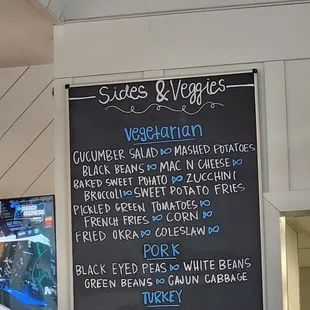 Sides & Veggies
Vegetarian
CUCUMBER SALAD ∞ MASHED POTATOES
BLACK BEANS ∞ MAC N CHEESE ∞
BAKED SWEET POTATO ∞ ZUCCHINI
BROCCOLI ∞ SWEET POTATO FRIES
PICKLED GREEN TOMATOES ∞
FRENCH FRIES ∞ CORN ∞
FRIED OKRA ∞ COLESLAW ∞
PORK
BLACK EYED PEAS ∞ WHITE BEANS
GREEN BEANS ∞ CAJUN CABBAGE
TURKEY